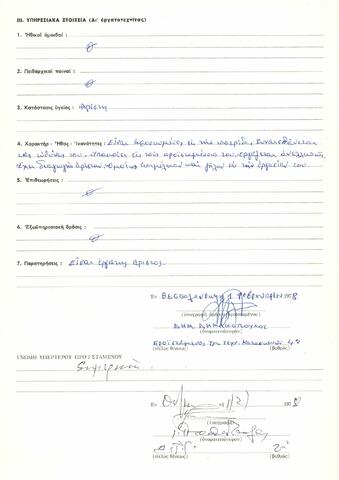 III. ΥΠΗΡΕΣΙΑΚΑ ΣΤΟΙΧΕΙΑ (Δι' ἐργατοτεχνίτας)
1. Ἠθικαὶ ἀμοιβαί :
2. Πειθαρχικαὶ ποιναί :
3. Κατάστασις ὑγείας : Ἀρίστη
4. Χαρακτὴρ - Ἦθος - Ἱκανότητες : Εἶναι ἀφοσιωμένος εἰς τὴν πατρίδα. Συναισθάνεται
τὰς εὐθύνας του. Ὑπακούει εἰς τοὺς προϊσταμένους του ἐργάζεται ἀνελλιπῶς
ἔχει διαγωγὴν ἀρίστην εἰς τὴν ἐργασίαν του.
5. Ἐπιθεωρήσεις :
6. Ἐξωϋπηρεσιακὴ δρᾶσις :
7. Παρατηρήσεις : Εἶναι ἐργάτης ἄριστος.
Ἐν Θεσσαλονίκῃ 1 Φεβρουαρίου 1978
(ὑπογραφὴ προϊσταμένου)
ΔΗΜ. ΔΗΜΑΚΟΠΟΥΛΟΣ
(ὀνοματεπώνυμον)
(τίτλος θέσεως) (βαθμός)
ΓΝΩΜΗ ΥΠΕΡΤΕΡΟΥ ΠΡΟΪΣΤΑΜΕΝΟΥ
Συμφωνῶ
Ἐν Θ/νίκῃ τῇ 1/2/ 1978
(ὑπογραφὴ)
(ὀνοματεπώνυμον)
(τίτλος θέσεως) (βαθμός)